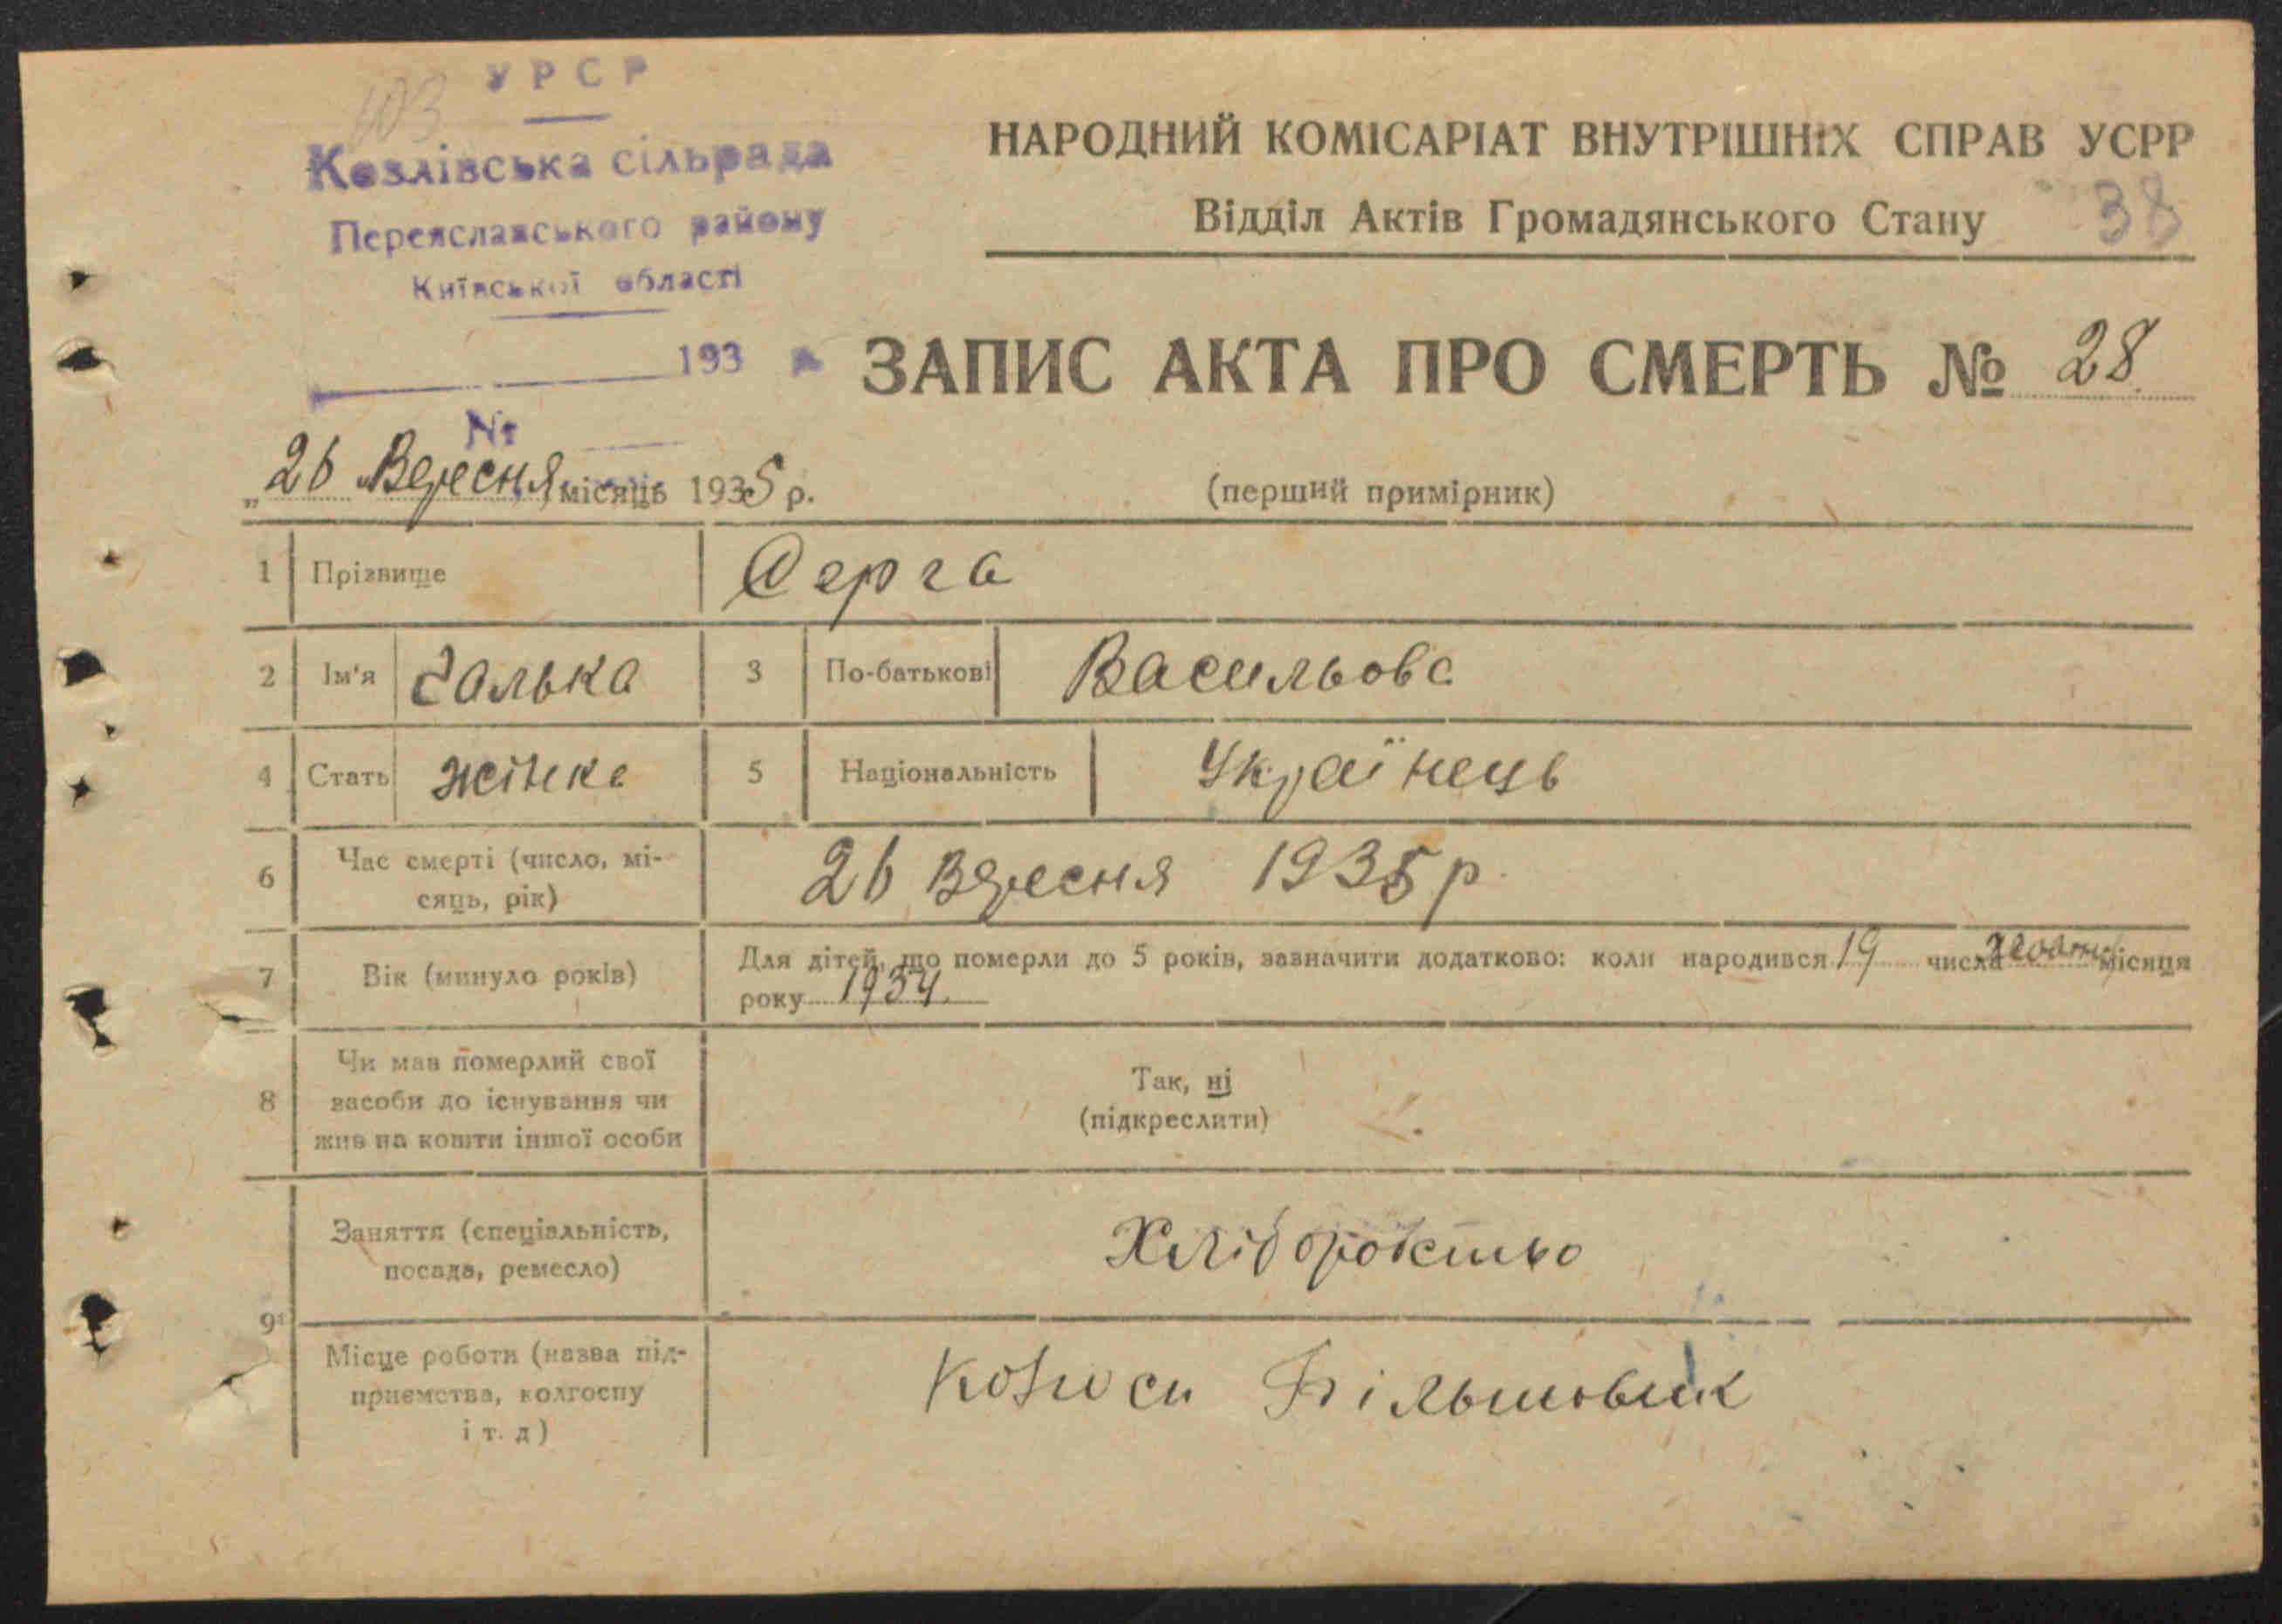 103
УРСР
Козлівська сільрада
Переяславського району
Київської області
193 р
№
НАРОДНИЙ КОМІСАРІАТ ВНУТРІШНІХ СПРАВ УСРР
Відділ Актів Громадянського Стану 38
ЗАПИС АКТА ПРО СМЕРТЬ № 28
„26 Вересня місяць 1935 р.
(перший примірник)
1 Прізвище Серга
2 Ім'я Галька 3 По-батькові Васильова
4 Стать жінка 5 Національність Українець
6 Час смерті (число, мі-
сяць, рік) 26 Вересня 1935 р
7 Вік (минуло років) Для дітей, що померли до 5 років, зазначити додатково: коли народився 19 числа місяця
року 1934
8 Чи мав померлий свої
засоби до існування чи
жив на кошти іншої особи
Так, ні
(підкреслити)
9 Заняття (спеціальність,
посада, ремесло) Хліборобство
Місце роботи (назва під-
приємства, колгоспу
і т. д) Більшовик